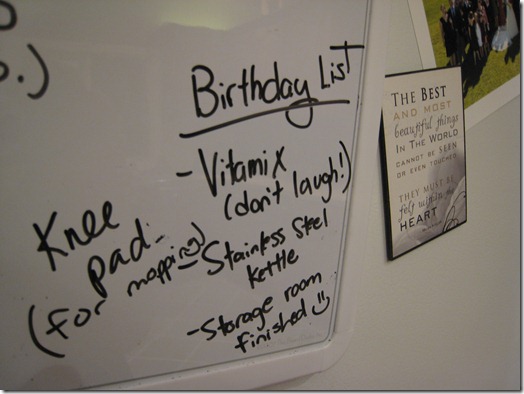 o.)
Birthday List
- Vitamix
(don't laugh!)
- Stainless Steel
kettle
- Storage room
finished
Knee
pad-
(for mopping)
THE BEST
AND MOST
beautiful things
IN THE WORLD
CANNOT BE SEEN
OR EVEN TOUCHED
THEY MUST BE
felt within the
HEART